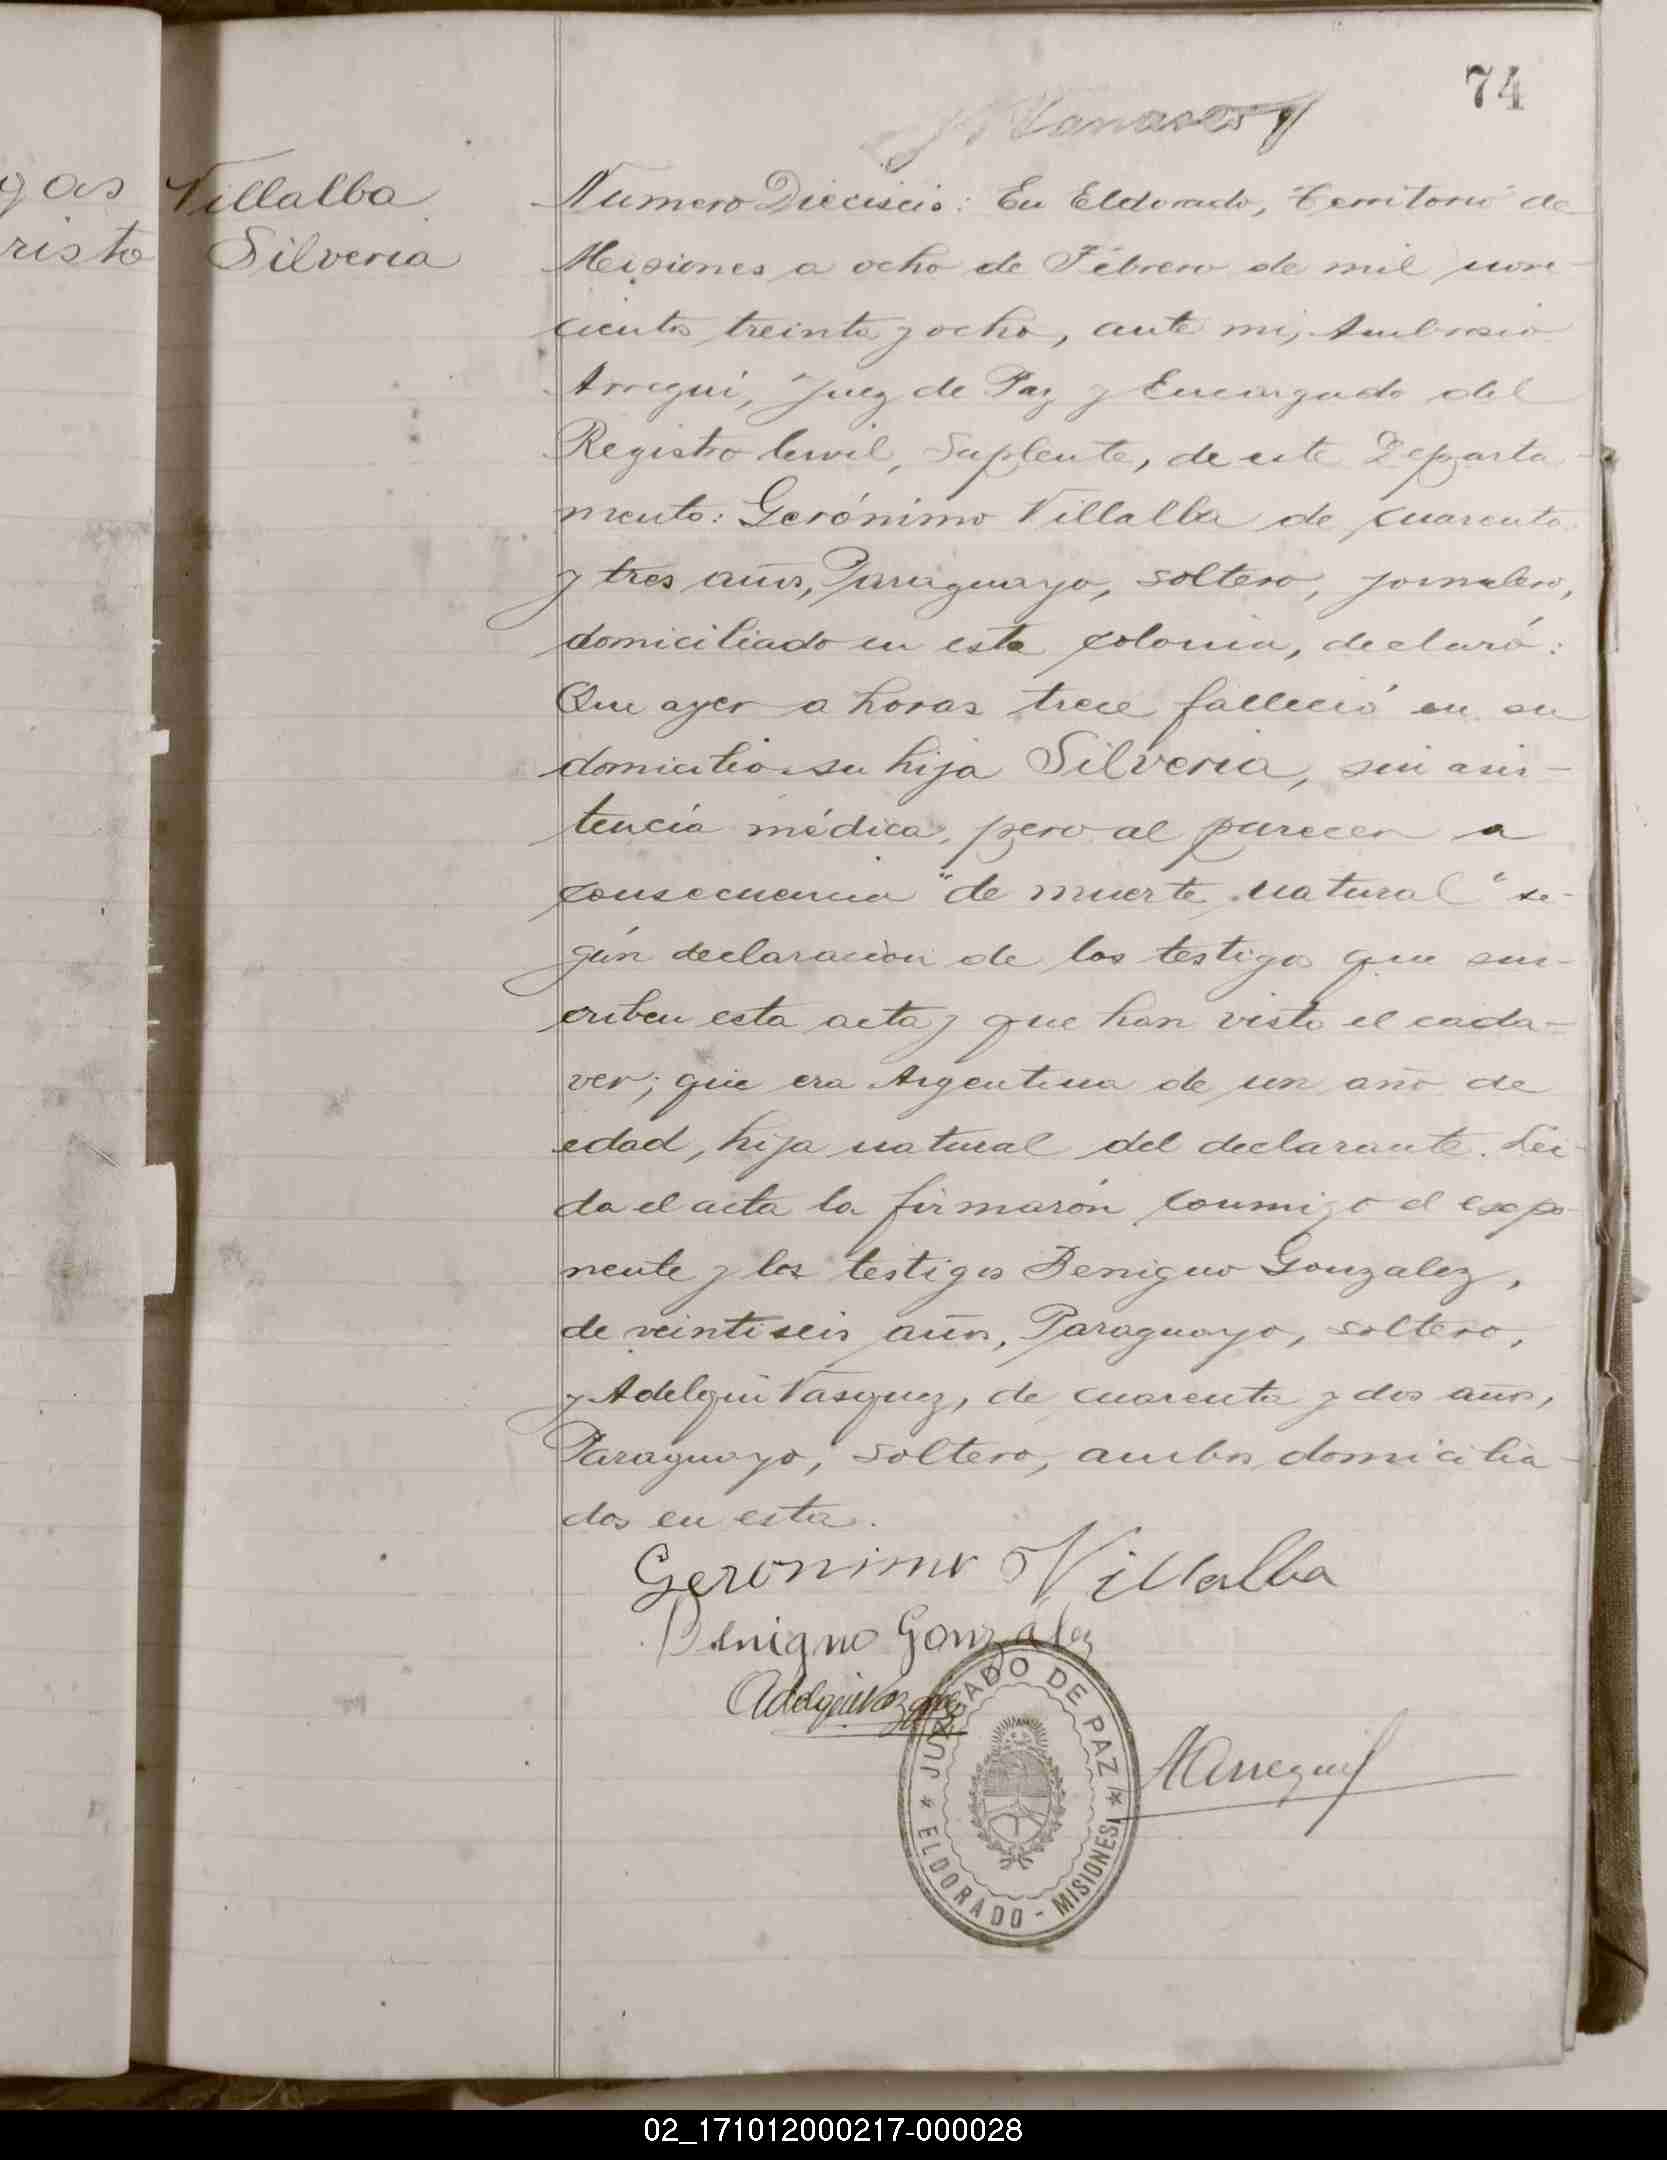 74
gas
risto
Villalba
Silveria
Numero Dieciseis: En Eldorado, territorio de
Misiones a ocho de Febrero de mil nove-
cientos treinta y ocho, ante mi, Ambrosio
Arregui, Juez de Paz y Encargado del
Registro Civil, Suplente, de este Departa-
mento: Gerónimo Villalba de cuarenta
y tres años, Paraguayo, soltero, jornalero,
domiciliado en esta colonia, declaró:
Que ayer a horas trece falleció en su
domicilio su hija Silveria, sin asis-
tencia médica, pero al parecer a
consecuencia "de muerte natural" se-
gún declaración de los testigos que sus-
criben esta acta y que han visto el cada-
ver; que era Argentina de un año de
edad, hija natural del declarante. Leí-
da el acta la firmarón conmigo el expo-
nente y los testigos Benigno Gonzalez,
de veintiseis años, Paraguayo, soltero,
y Adelqui Vasquez, de cuarenta y dos años,
Paraguayo, soltero, ambos domicilia-
dos en esta.
Geronimo Villalba
Benigno Gonzalez
Adelqui Vazquez
JUZGADO DE PAZ
ELDORADO - MISIONES
AArregui
02_171012000217-000028